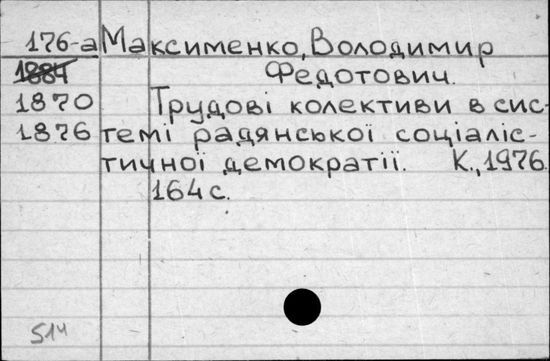 176-а Максименко, Володимир
1884 Федотович.
1870 Трудові колективи в сис-
1876 темі радянської соціаліс-
тичної демократії. К., 1976.
164 с.
514